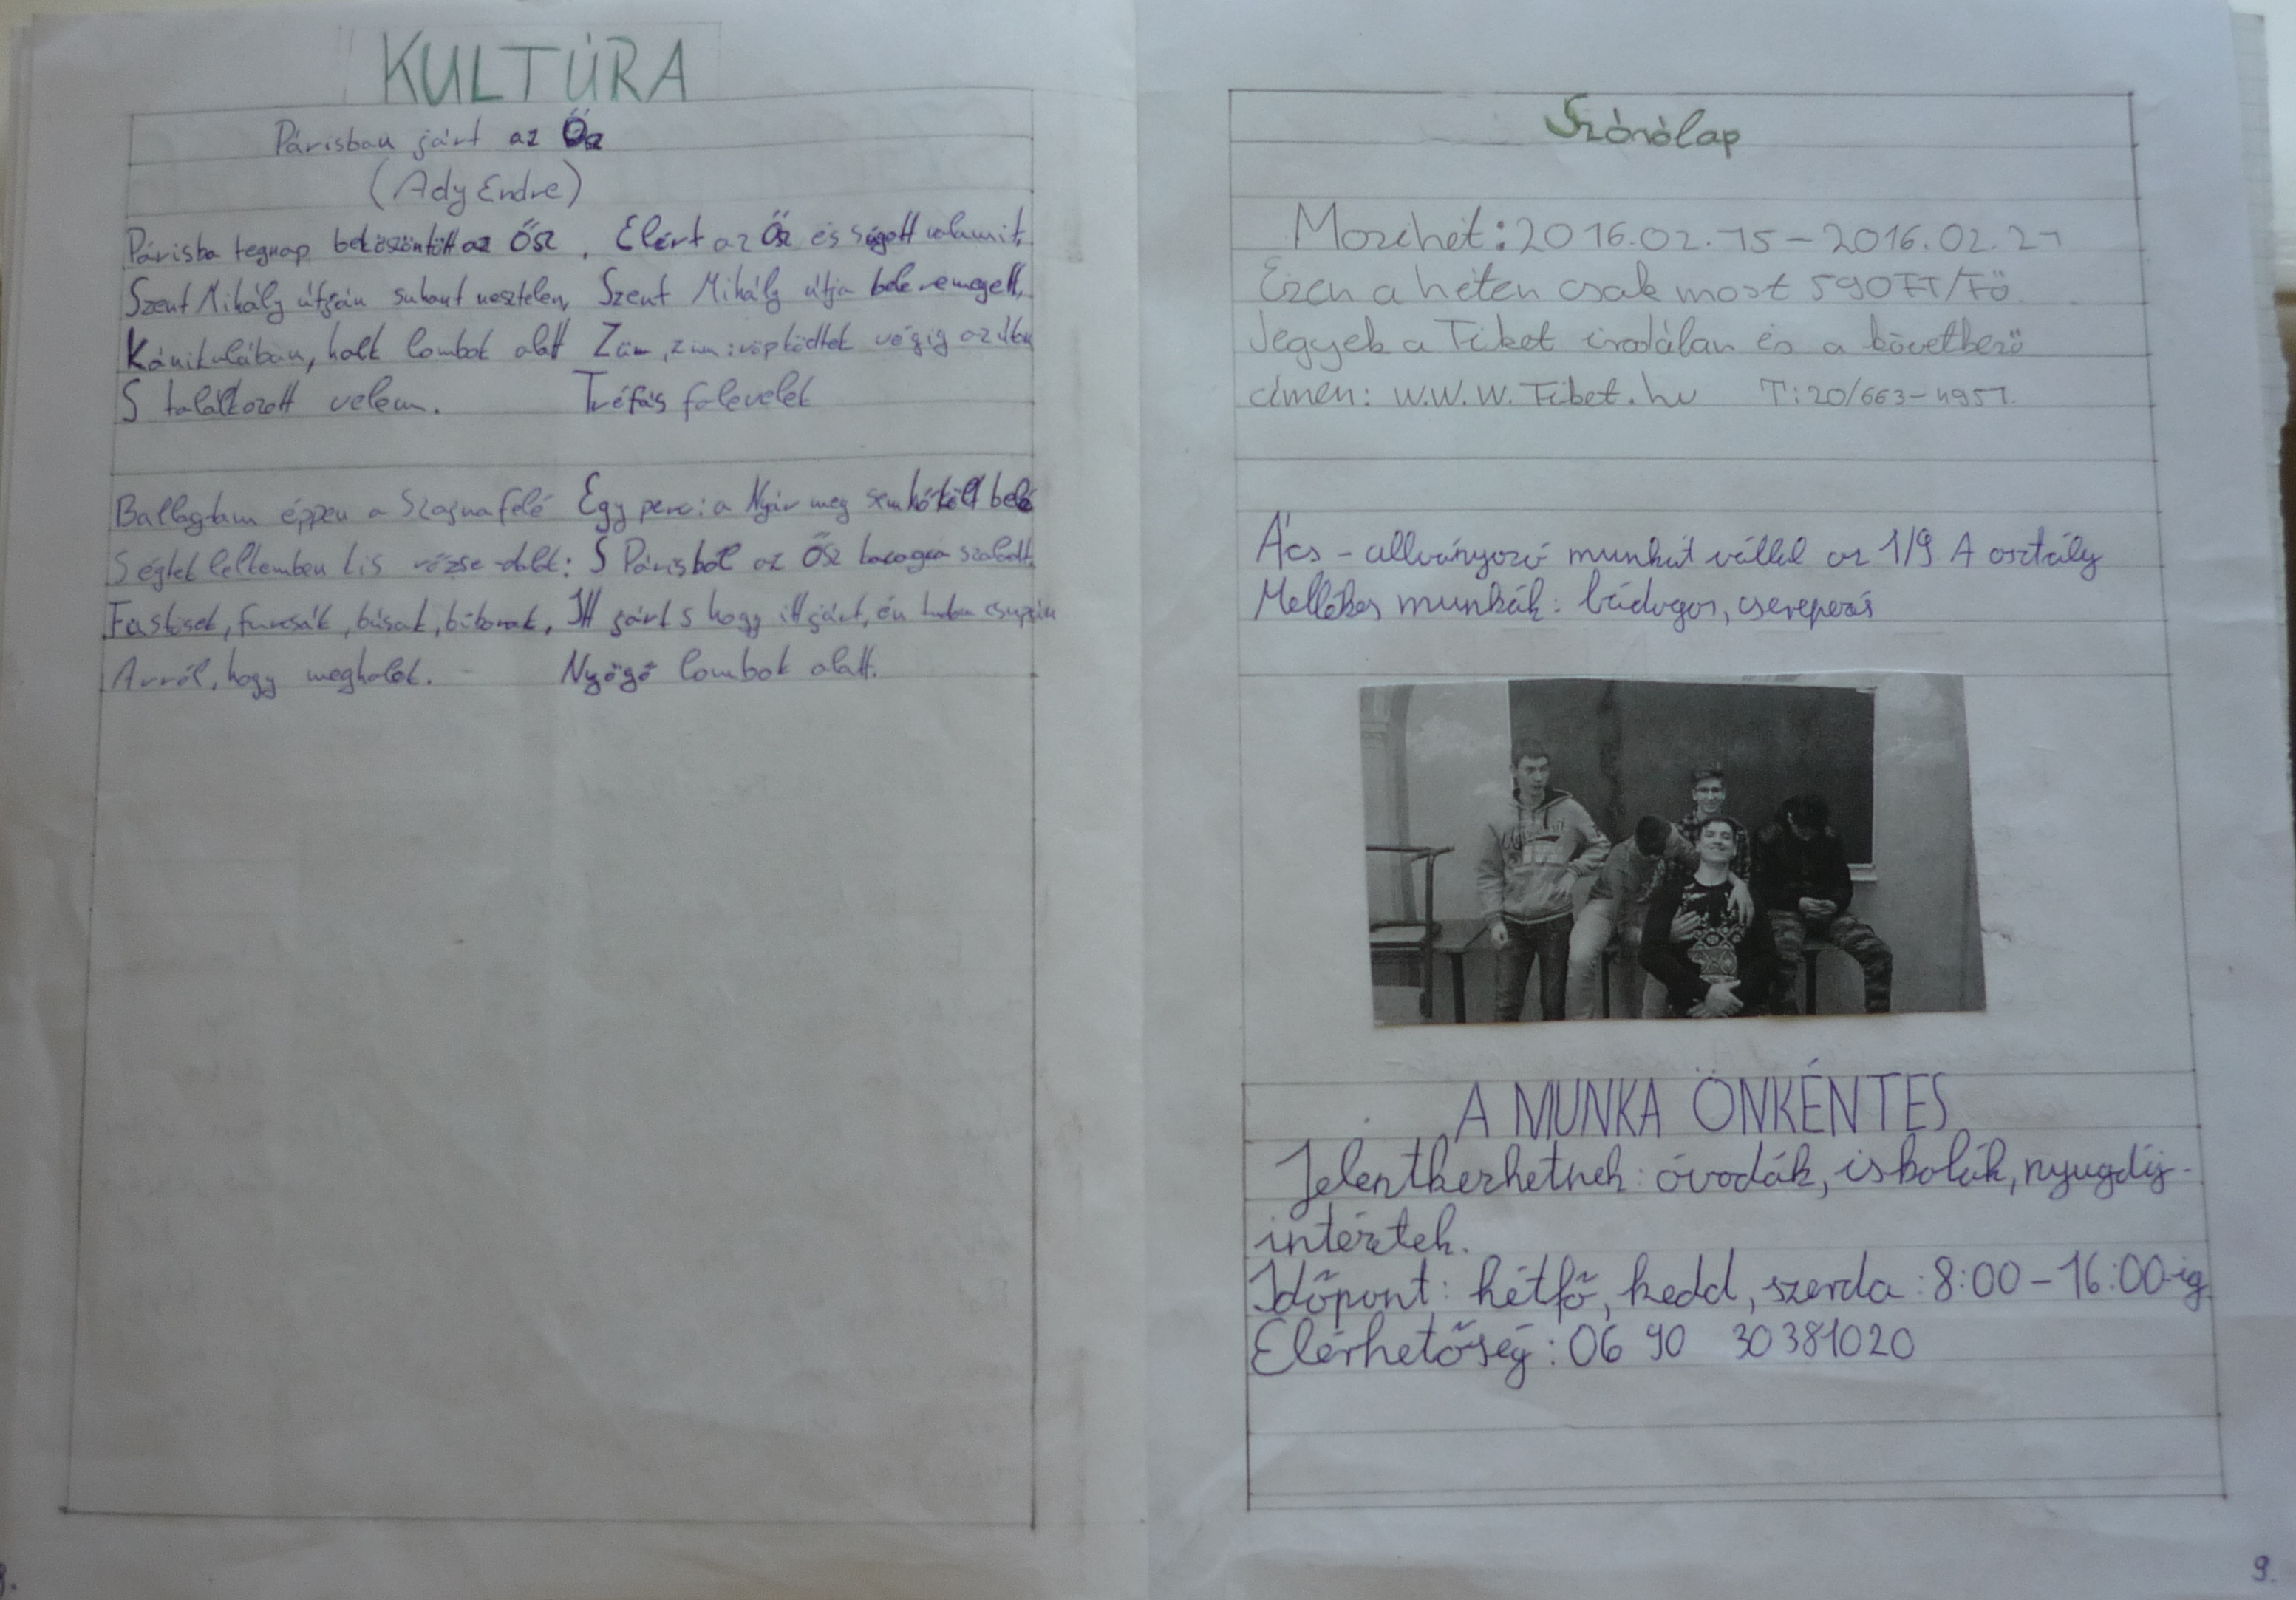 KULTÚRA
Párisban járt az Ősz
(Ady Endre)
Párisba tegnap beköszöntött az Ősz,
Szent Mihály útján suhant nesztelen,
Kánikulában, halk lombok alatt
S találkozott velem.
Ballagtam éppen a Szajna felé
S égtek lelkemben kis rőzse-dalok:
Füstösek, furcsák, búsak, bíborak,
Arról, hogy meghalok.
Elért az Ősz és súgott valamit,
Szent Mihály útja beleremegett,
Züm, züm: röpködtek végig az úton
Tréfás falevelek
Egy perc: a Nyár meg sem hőkölt belé
S Párisból az Ősz kacagva szaladt.
Itt járt s hogy itt járt, én tudom csupán
Nyögő lombok alatt.
8.
Szórólap
Mozihét: 2016.02.15-2016.02.21
Ezen a héten csak most 590FT/Fő
Jegyek a Tiket irodában és a következő
címen: w.w.w.Tiket.hu T:20/663-4957.
Ács - allványozó munkát vállal az 1/9 A osztály
Mellékes munkák: bádogos, cserepezés
A MUNKA ÖNKÉNTES
Jelentkezhetnek: óvodák, iskolák, nyugdíj-
intéztek.
Időpont: hétfő, kedd, szerda: 8:00-16:00-ig
Elérhetőség: 06 90 30381020
9.